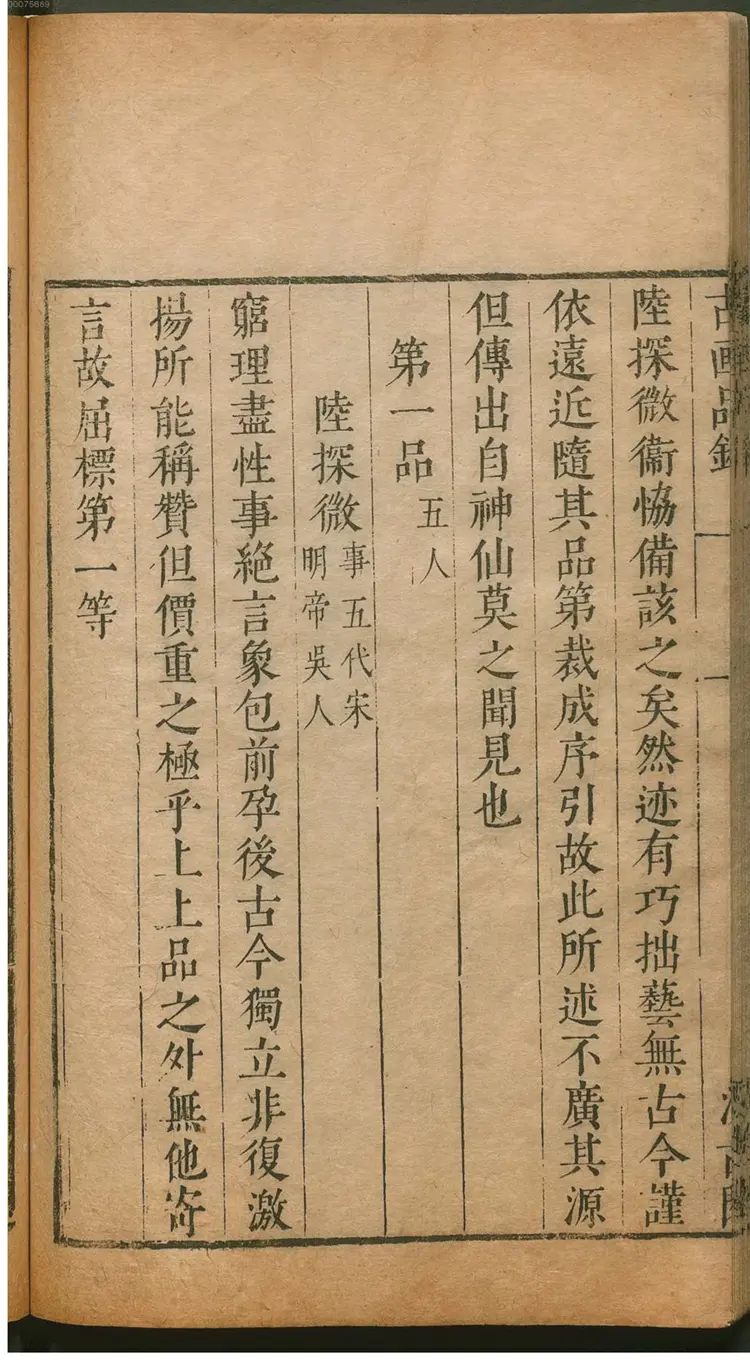 00075869
古画品錄
陸探微衞恊備該之矣然迹有巧拙藝無古今謹
依遠近隨其品第裁成序引故此所述不廣其源
但傳出自神仙莫之聞見也
第一品五人
陸探微事五代宋
明帝吳人
窮理盡性事絕言象包前孕後古今獨立非復激
揚所能稱贊但價重之極乎上上品之外無他寄
言故屈標第一等